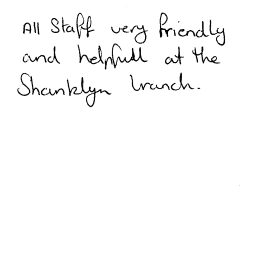 All Staff very friendly
and helpfull at the
Shanklyn branch.